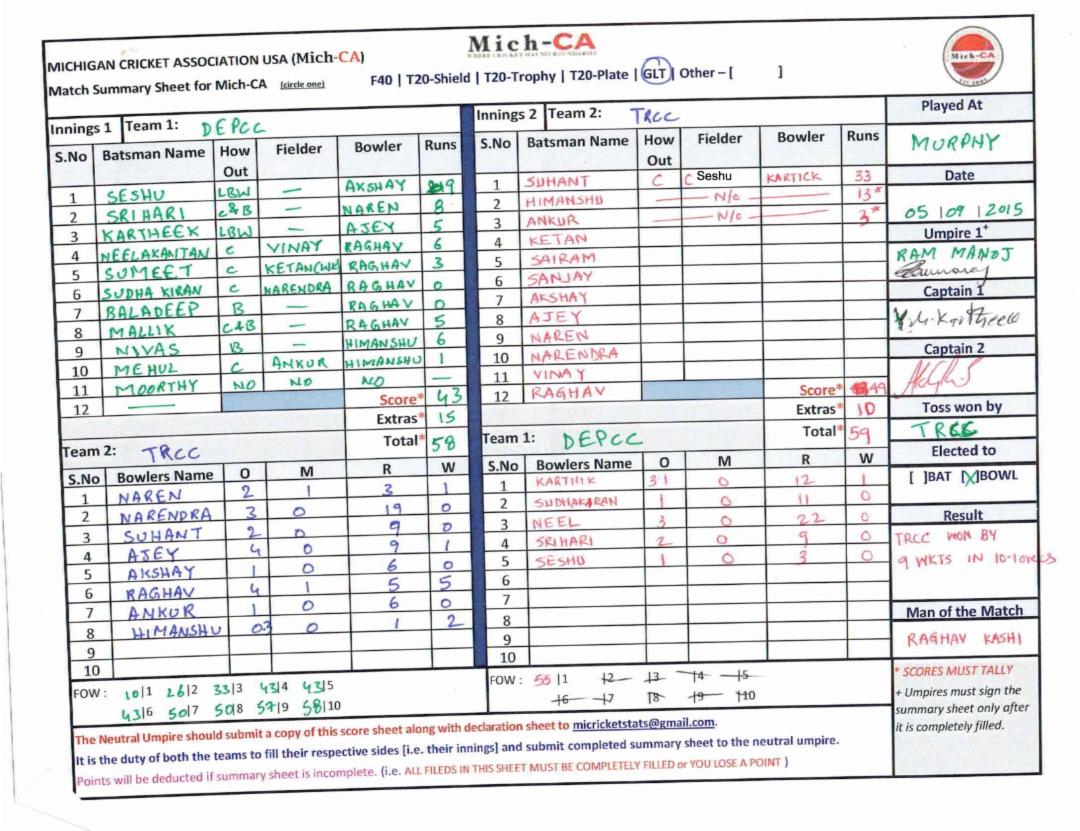 Mich-CA
WHERE CRICKET HAS NO BOUNDARIES
Mich-CA
EST. 2001
MICHIGAN CRICKET ASSOCIATION USA (Mich-CA)
Match Summary Sheet for Mich-CA (circle one) F40 | T20-Shield | T20-Trophy | T20-Plate | GLT | Other – [ ]
Innings 1 Team 1: DEPCC
S.No Batsman Name How Out Fielder Bowler Runs
1 SESHU LBW — AKSHAY 9
2 SRIHARI c&B — NAREN 8
3 KARTHEEK LBW — AJEY 5
4 NEELAKANTAN C VINAY RAGHAV 6
5 SUMEET C KETAN(WK) RAGHAV 3
6 SUDHA KIRAN C NARENDRA RAGHAV 0
7 BALADEEP B — RAGHAV 0
8 MALLIK C&B — RAGHAV 5
9 NIVAS B — HIMANSHU 6
10 MEHUL C ANKUR HIMANSHU 1
11 MOORTHY NO NO NO —
12 —
Score* 43
Extras* 15
Total* 58
Team 2: TRCC
S.No Bowlers Name O M R W
1 NAREN 2 1 3 1
2 NARENDRA 3 0 19 0
3 SUHANT 2 0 9 0
4 AJEY 4 0 9 1
5 AKSHAY 1 0 6 0
6 RAGHAV 4 1 5 5
7 ANKUR 1 0 6 0
8 HIMANSHU 0.3 0 1 2
9
10
FOW : 10|1 26|2 33|3 43|4 43|5
43|6 50|7 50|8 57|9 58|10
Innings 2 Team 2: TRCC
S.No Batsman Name How Out Fielder Bowler Runs
1 SUHANT C C Seshu KARTICK 33
2 HIMANSHU — N/o — 13*
3 ANKUR — N/o — 3*
4 KETAN
5 SAIRAM
6 SANJAY
7 AKSHAY
8 AJEY
9 NAREN
10 NARENDRA
11 VINAY
12 RAGHAV
Score* 49
Extras* 10
Total* 59
Team 1: DEPCC
S.No Bowlers Name O M R W
1 KARTHIK 3.1 0 12 1
2 SUDHAKARAN 1 0 11 0
3 NEEL 3 0 22 0
4 SRIHARI 2 0 9 0
5 SESHU 1 0 3 0
6
7
8
9
10
FOW : 55|1 |2 |3 |4 |5
|6 |7 |8 |9 |10
Played At
MURPHY
Date
05|09|2015
Umpire 1+
RAM MANOJ
Captain 1
Captain 2
Toss won by
TRCC
Elected to
[ ]BAT [X]BOWL
Result
TRCC WON BY
9 WKTS IN 10-1 overs
Man of the Match
RAGHAV KASHI
* SCORES MUST TALLY
+ Umpires must sign the
summary sheet only after
it is completely filled.
The Neutral Umpire should submit a copy of this score sheet along with declaration sheet to micricketstats@gmail.com.
It is the duty of both the teams to fill their respective sides [i.e. their innings] and submit completed summary sheet to the neutral umpire.
Points will be deducted if summary sheet is incomplete. (i.e. ALL FILEDS IN THIS SHEET MUST BE COMPLETELY FILLED or YOU LOSE A POINT )